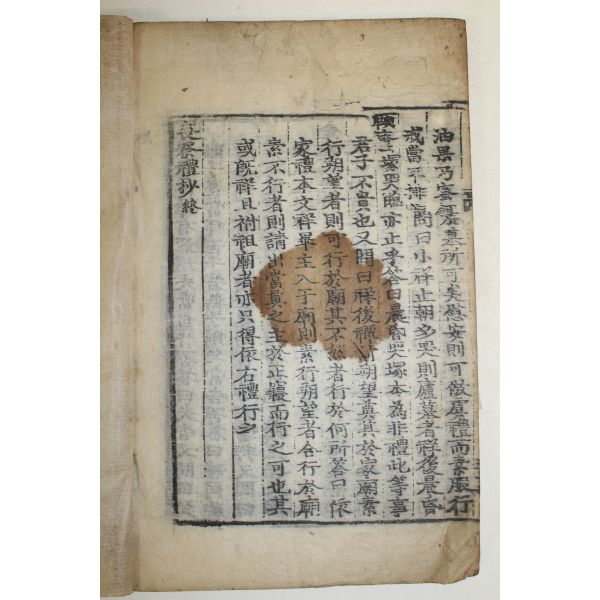 油果乃蜜果墓所可矣慰安則可倣虞禮而素服行
戒當不排 問曰小祥止朝夕哭則廬墓者祥後晨昏
塚哭臨亦止乎答曰晨昏哭塚本為非禮此等事
君子不貴也又問曰祥後禫前朔望奠其於家廟素
行朔望者則可行於廟其不然者行於何所答曰依
家禮本文祥畢主入于廟則素行朔望者合行於廟
素不行者則請出當奠之主於正寢而行之可也其
或旣祥且祔祖廟者亦只得依右禮行之
喪祭禮抄終